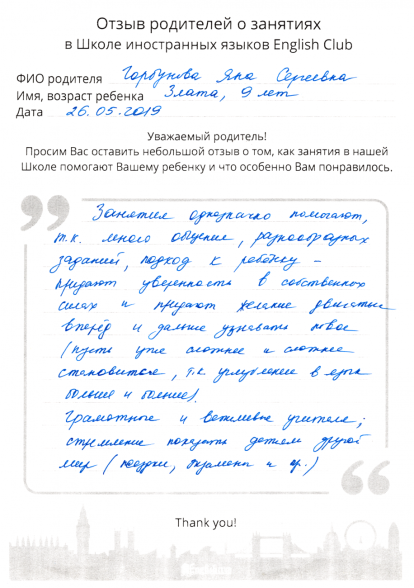 Отзыв родителей о занятиях
в Школе иностранных языков English Club
ФИО родителя Горбунова Яна Сергеевна
Имя, возраст ребенка Злата, 9 лет
Дата 26.05.2019
Уважаемый родитель!
Просим Вас оставить небольшой отзыв о том, как занятия в нашей
Школе помогают Вашему ребенку и что особенно Вам понравилось.
Занятия однозначно помогают,
т.к. много общение, разнообразных
заданий, подход к ребёнку –
придают уверенность в собственных
силах и придают желание двигаться
вперёд и дальше узнавать новое
(пусть уже сложнее и сложнее
становиться, т.к. углубление в язык
больше и больше).
Грамотные и вежливые учителя;
стремление показать детям другой
мир (поездки, экзамены и др.)
Thank you!